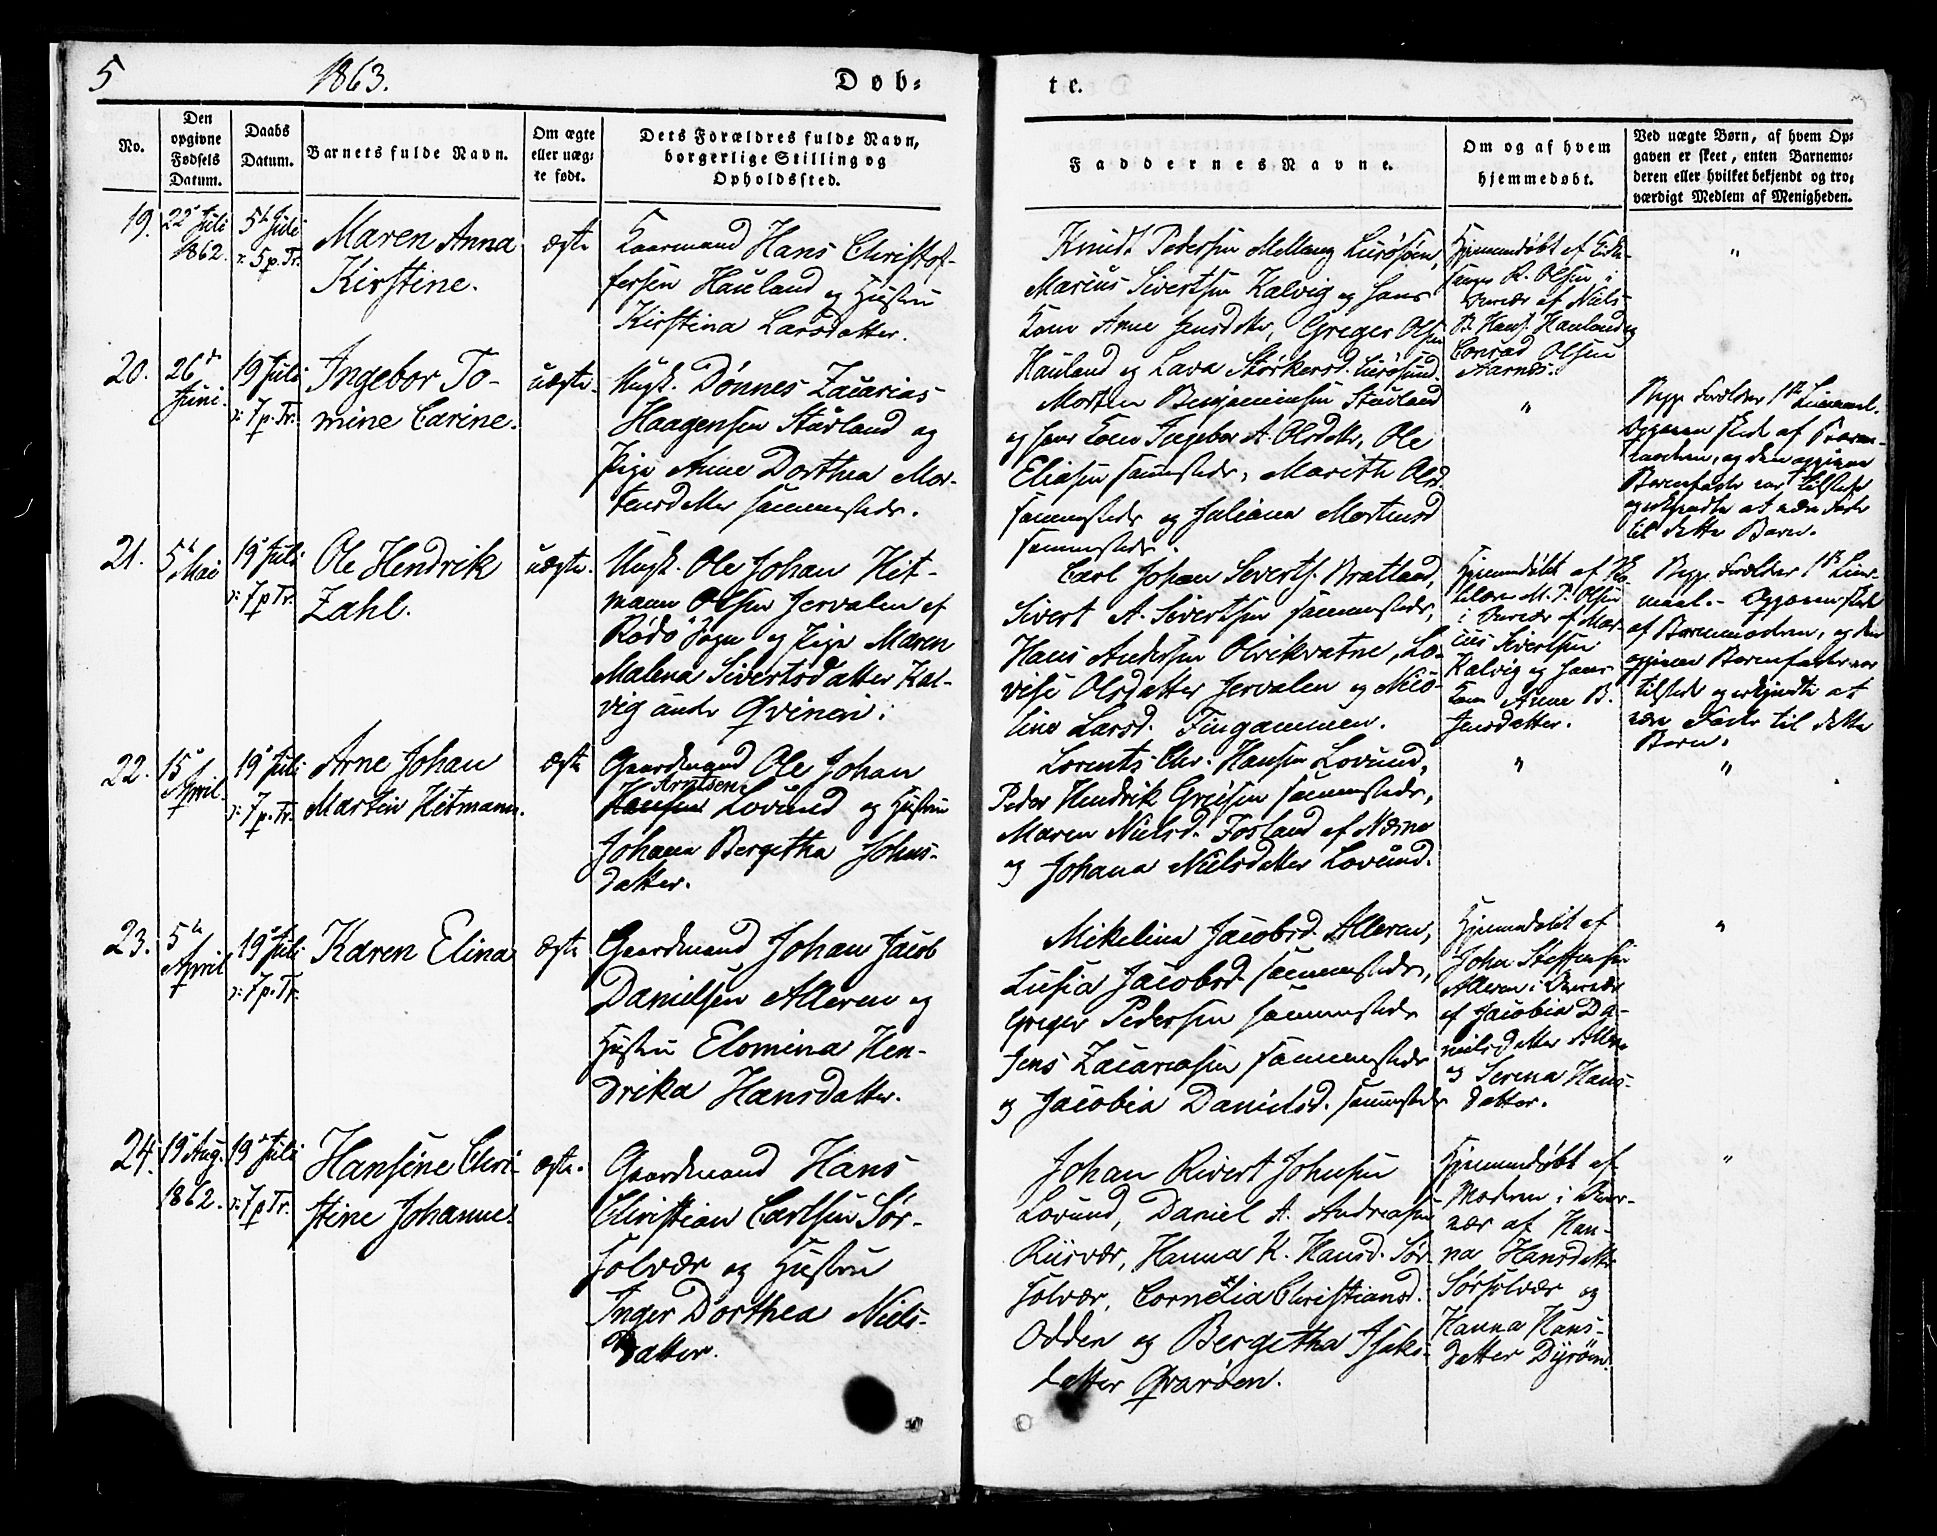 5
1863.
Døb-
te.
No.
Den opgivne Fødsels Datum.
Daabs Datum.
Barnets fulde Navn.
Om ægte eller uæg- te født.
Dets Forældres fulde Navn, borgerlige Stilling og Opholdssted.
Faddernes Navne.
Om og af hvem hjemmedøbt.
Ved uægte Børn, af hvem Op- gaven er skeet, enten Barnemo- deren eller hvilket bekjendt og tro- værdigt Medlem af Menigheden.
19.
22 Juli
1862.
5 Juli
5 p. Tr.
Maren Anna
Kirstine.
ægte
Hans Christof-
fersen Hauland og Hustru
Kirstina Larsdatter.
Knud Pedersen Lurøsøen,
Marius Sivertsen Kalvig og hans
Kone Arne Jensdtr, Greger Olsen
Hauland og Lava Størkersd. Lurøsund.
Hjemmedøbt af
K. Olsen i
Nærvær af Niels
P. Hans. Hauland og
Conrad Olsen
Aarnes.
"
20.
26 Juni.
19 Juli
7 p. Tr.
Ingebor To-
mine Carine.
uægte
Ungk. Dønnes Zacarias
Haagensen Stuvland og
Pige Anne Dorthea Mor-
tensdatter sammesteds.
Morten Benjaminsen Stuvland
og hans Kone Ingebor A. Olsdtr, Ole
Eliasen sammesteds, Marith Olsd.
sammesteds og Juliana Mortensd
sammesteds.
"
Begge Forældre 1ste Leiermaal.
Opgaven skede af Barne-
moderen, og den opgivne
Barnefader var tilstede
og erkjendte at være Fader
til dette Barn.
21.
5 Mai
19 Juli
7 p Tr.
Ole Hendrik
Zahl.
uægte.
Ungk. Ole Johan Hit-
mann Olsen Jervalen af
Rødø Sogn og Pige Maren
Malena Sivertsdatter Kal-
vig
Carl Johan Siverts. Bratland,
Sivert A. Sivertsen sammesteds,
Hans Andersen Olvikvatne, Lo-
vise Olsdatter Jervalen og Nico-
line Larsd. Fingammen.
Hjemmedøbt af
M. P. Olsen
i Nærvær af Mar-
ius Sivertsen
Kalvig og hans
Kone Anne B.
Jensdatter.
Begge Forældre 1ste Leier-
maal. - Opgaven skede
af Barnemoderen, og den
opgivne Barnefader var
tilstede og erkjendte at
være Fader til dette
Barn.
22.
15 April.
19 Juli
7 p. Tr.
Arne Johan
Martin Hitmann.
ægte
Gaardmand Ole Johan
Arntsen
Hansen Lovund og Hustru
Johana Bergitha Johns-
datter.
Lorents Chr. Hansen Lovund,
Peder Hendrik Greisen sammesteds,
Maren Nielsd. Fosland af Næsne
og Johana Nielsdatter Lovund.
"
"
23.
5 April
19 Juli
7 p. Tr.
Karen Elina
ægte
Gaardmand Johan Jacob
Danielsen Alleren og
Hustru Elomina Hen-
drika Hansdatter.
Mikelina Jacobsd. Alleren,
Lusia Jacobsd. sammesteds,
Greger Pedersen sammesteds
Jens Zacariasen sammesteds
og Jacobia Danielsd. sammesteds
Hjemmedøbt af
John Steffensen
Alleren i Nærvær
af Jacobia Da-
nielsdatter Alleren
og Serina Hans-
datter.
"
24.
19 Aug.
1862.
19 Juli
7 p Tr.
Hansine Chri-
stine Johanne.
ægte.
Gaardmand Hans
Christian Carlsen Sør-
solvær og Hustru
Inger Dorthea Niels-
datter.
Johan Rivert Johnsen
Lovund, Daniel A. Andreasen
Riisvær, Hanna K. Hansd. Sør-
solvær, Cornelia Christiansd.
Odden og Bergetha Isaks-
datter Qvarøen.
Hjemmedøbt af
Modren i Nær-
vær af Han-
na Hansdatter
Sørsolvær og
Hanna Hans-
datter Dyrøen.
"